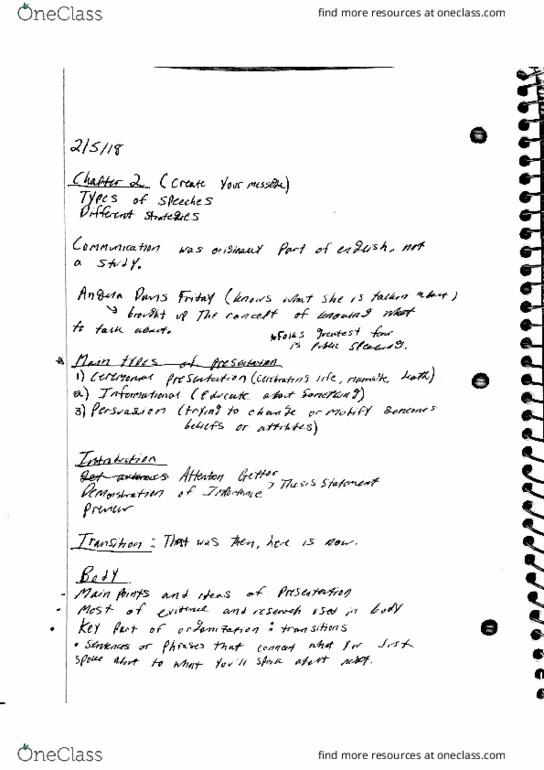 OneClass
find more resources at oneclass.com
2/5/18
Chapter 2 (Create Your message)
Types of speeches
Different strategies
Communication was originally part of english, not
a study.
Angela Davis Friday (knows what she is talkin about)
↳ brought up The concept of knowing what
to talk about.
*Folks greatest fear
is public speaking.
* Main types of Presentation
1) Ceremonial presentation (celebrating life, death)
2) Informational (Educate about something)
3) Persuasion (trying to change or motify someones
beliefs or attibites)
Introduction
Attention Getter
> Thesis Statement
Demonstration of Importance
Transition: That was then, here is now.
Body
- Main Points and ideas of Presentation
- Most of evidence and research used in body
• Key Part of organization: transitions
• Sentences or Phrases that connect what You Just
spoke about to what You'll speak about next.
OneClass
find more resources at oneclass.com